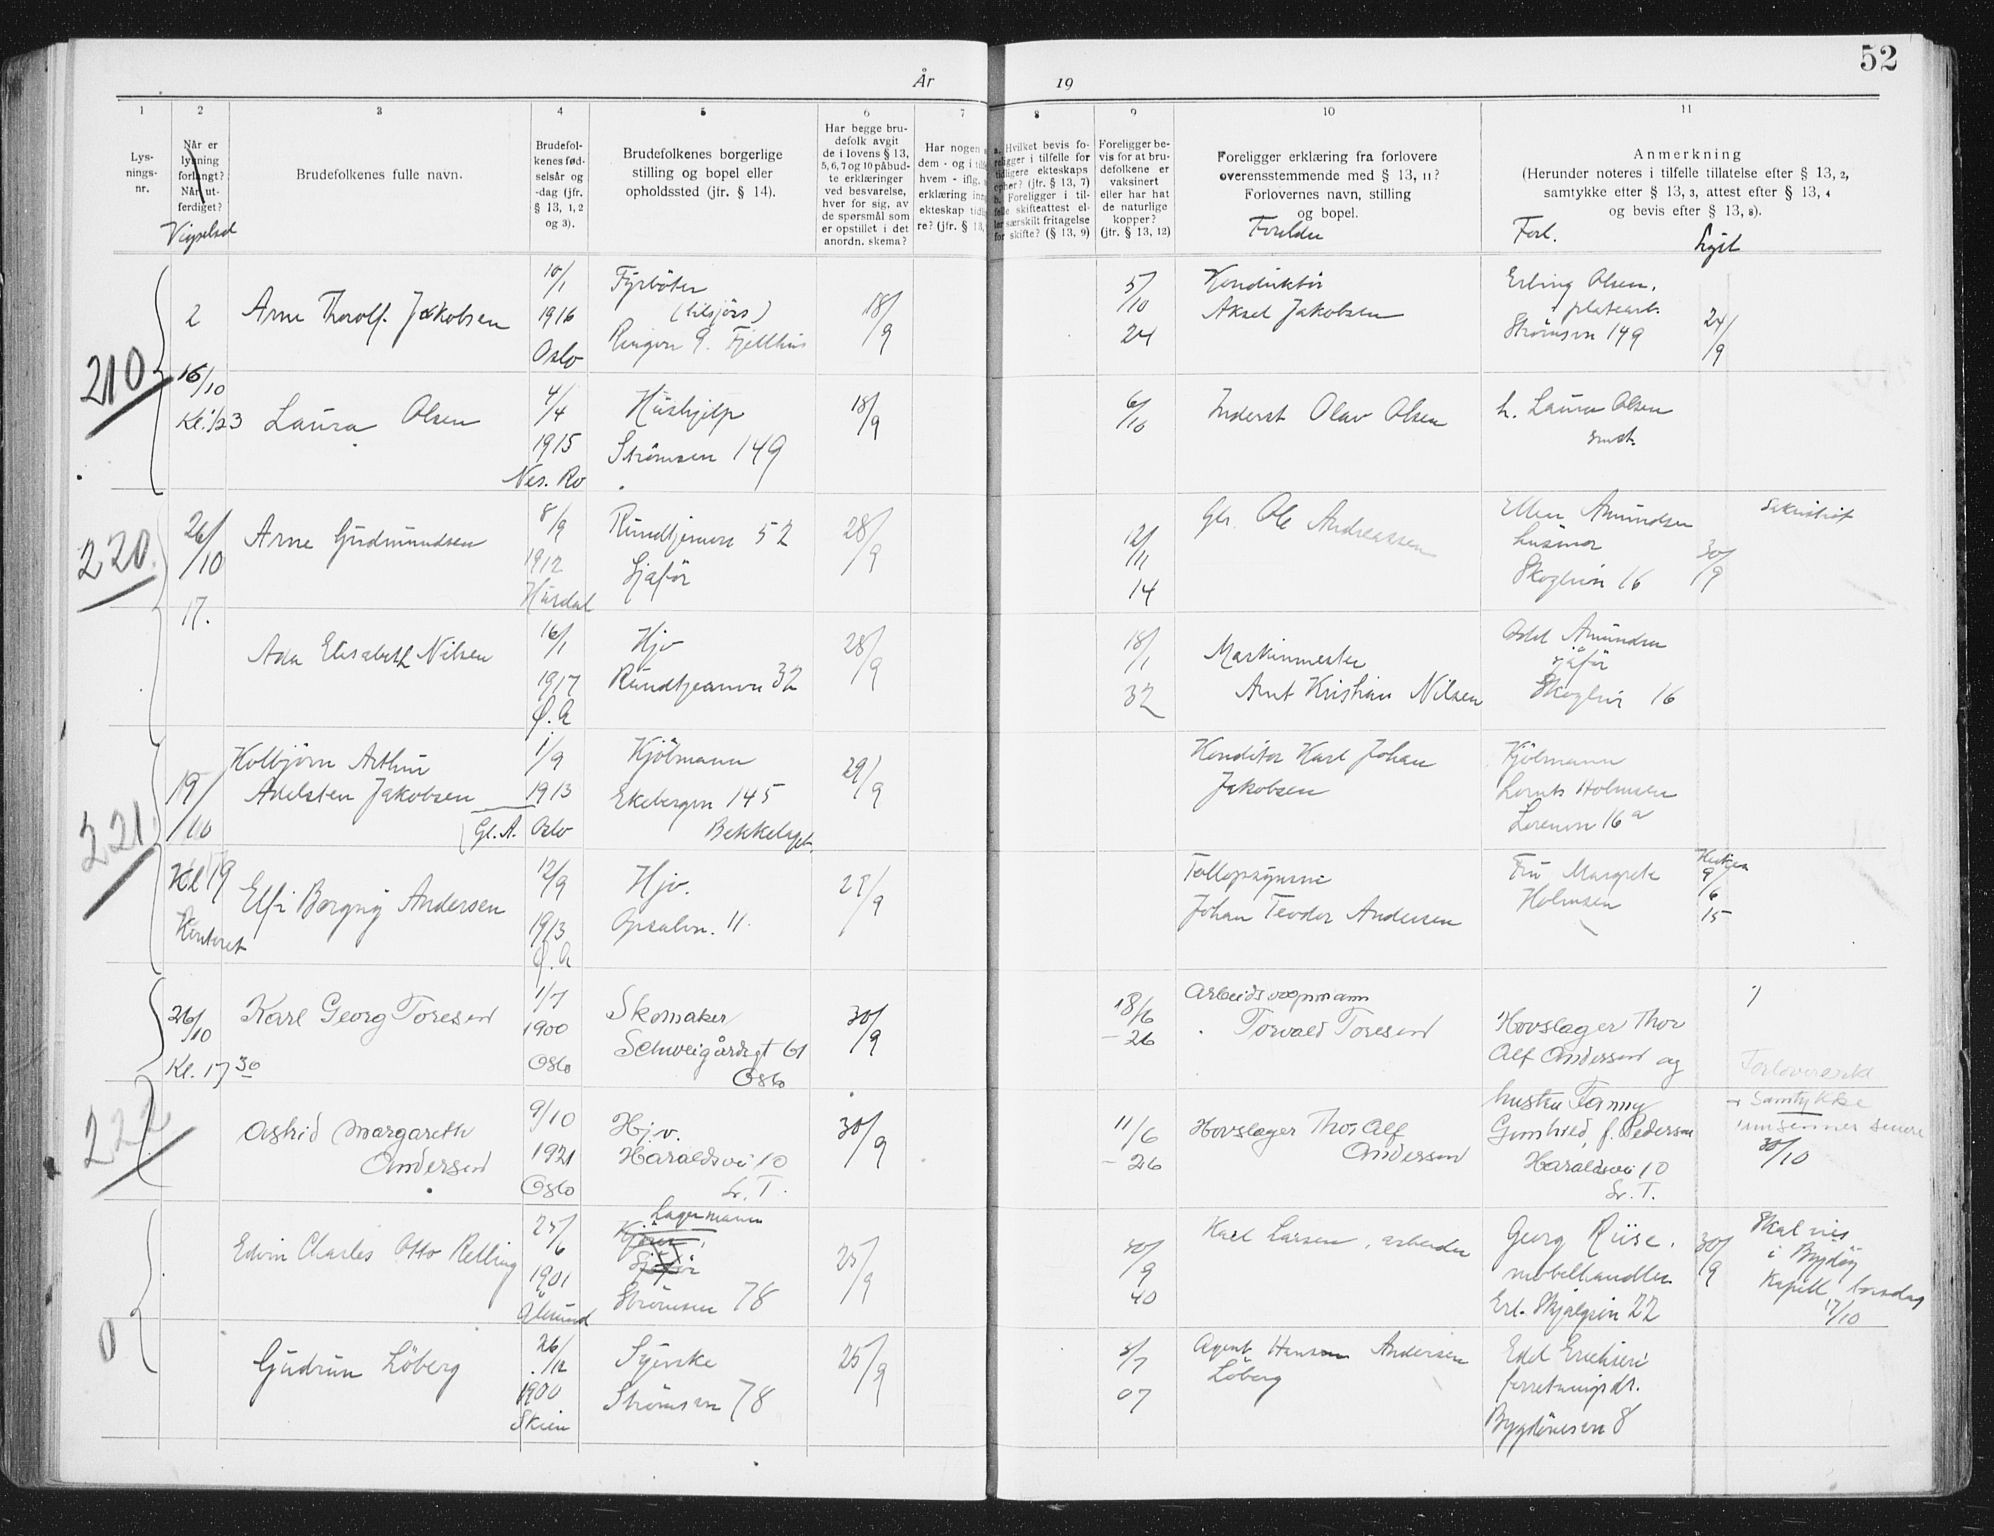 52
År 19
1 2 3 4 5 6 7 8 9 10 11
Lys-
nings-
nr.
Når er
lysning
forlangt?
Når ut-
ferdiget?
Vigselsd
Brudefolkenes fulle navn.
Brudefol-
kenes fød-
selsår og
-dag (jfr.
§ 13, 1, 2
og 3).
Brudefolkenes borgerlige
stilling og bopel eller
opholdssted (jfr. § 14).
Har begge bru-
defolk avgit
de i lovens § 13,
5, 6, 7 og 10 påbud-
te erklæringer
ved besvarelse,
hver for sig, av
de spørsmål som
er opstillet i det
anordn. skema?
Har nogen
dem - og i
hvem - iflg.
erklæring
ekteskap
re? (jfr. § 13,
a. Hvilket bevis fo-
religger i tilfelle for
tidligere ekteskaps
opher? (jfr. § 13, 7)
b. Foreligger i til-
felle skifteattest el-
ler særskilt fritagelse
for skifte? (§ 13, 9)
Foreligger be-
vis for at bru-
defolkene er
vaksinert
eller har hat
de naturlige
kopper?
(jfr. § 13, 12)
Foreligger erklæring fra forlovere
overensstemmende med § 13, 11?
Forlovernes navn, stilling
og bopel.
Foreldre
Anmerkning
(Herunder noteres i tilfelle tillatelse efter § 13, 2,
samtykke efter § 13, 3, attest efter § 13, 4
og bevis efter § 13, 8).
Forl.
Lyst
210
2
16/10
Kl. 1/2 3
Arne Thorolf Jakobsen
10/1
1916
Oslo
Fyrbøter
(tilsjøs)
18/9
5/10
24
Konduktør
Aksel Jakobsen
Erling Olsen,
platearb.
Strømsvn 149
24/9
Laura Olsen
4/4
1915
Nes. Ro
Hushjelp
Strømsvn 149
18/9
6/10
Inderst Olav Olsen
h. Laura Olsen
smst.
220
26/10
17.
Arne Gudmundsen
8/9
1912
Hurdal
Rundtjernvn 52
Sjåfør
28/9
12/11
14
Gbr. Ole Andreassen
Ellen Amundsen
husmor
16
30/9
Sakristiet
Ada Elisabeth Nilsen
16/1
1917
Ø. A
Hjv
Rundtjernvn 32
28/9
18/1
32
Maskinmester
Arnt Kristian Nilsen
Odd Amundsen
sjåfør
16
221
19/10
Kl 19
Kontoret
Kolbjørn Arthur
Adelsten Jakobsen
(Gl. A.
1/9
1913
Oslo
Kjølmann
Ekebergvn 145
Bekkelaget.
29/9
Konditor Karl Johan
Jakobsen
Kjølmann
Holmsen
Lorenvn 16 a
Elfi Borgny Andersen
12/9
1913
Ø. A
Hjv.
Opsalvn. 11.
Johan Teodor Andersen
Fru Margrete
Holmsen
9/6
15
222
26/10
Kl. 17 30
Karl Georg Toresen
1/7
1900
Oslo
Skomaker
Schweigårdsgt 61
Oslo
30/9
18/6
- 26
Arbeidsvognmann
Torvald Toresen
Hovslager Thor
Alf Andersen og
Astrid Margareth
Andersen
9/10
1921
Oslo
Hj.v.
Haraldsvei 10
Gr. T.
30/9
11/6
- 26
Hovslager Thor Alf
Andersen
hustru Fanny
Gunhild, f. Pedersen
Haraldsvei 10
Gr. T.
Forlovererkl.
+ Samtykke
senere
30/10
0
Edvin Charles Otto Relling
25/6
1901
Ålesund
Lagermann
Strømsvn 78
25/9
30/9
40
Karl Larsen, arbeider
Georg Riise.
møbelhandler
Erl. Skjalgsn 22
30/9
Skal vies
i Bygdøy
Kapell torsdag
17/10
Gudrun Löberg
26/12
1900
Skien
Syerske
Strømsvn 78
25/9
3/7
07
Agent Hansen Andersen
Löberg
Edd Eriksen
forretningsdr.
Bygdønesvn 8